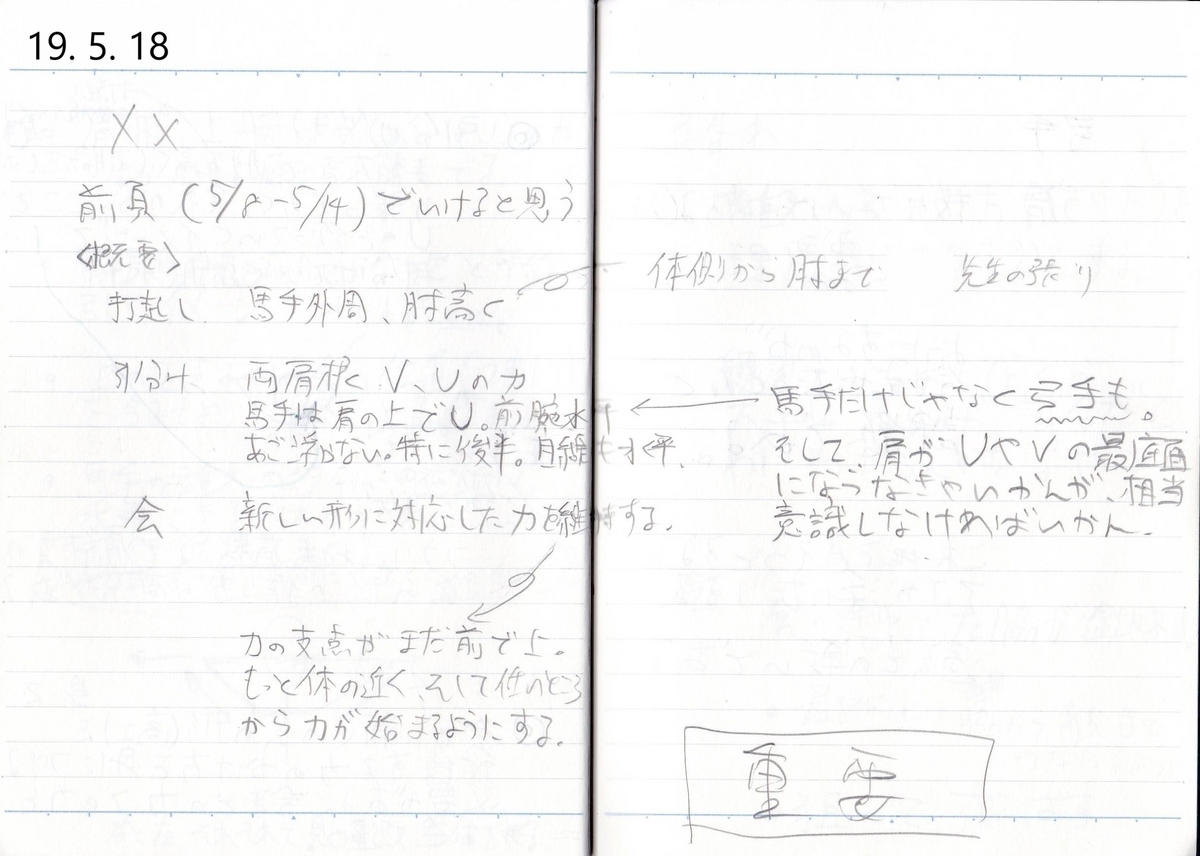 19. 5. 18
××
前頁（5/8-5/14）でいけると思う
〈概要〉
打起し 馬手外周、肘高く
体側から肘まで 先生の張り
引分け 両肩根く V、Uの力
馬手は肩の上でU。前腕水平
あご浮かない。特に後半。目線も水平、
馬手だけじゃなく弓手も。
そして、肩がUやVの最底面
にならなきゃいかんが、相当
意識しなければいかん。
会 新しい形に対応した力を維持する。
力の支点がまだ前で上。
もっと体の近く、そして低いところ
から力が始まるようにする。
重要